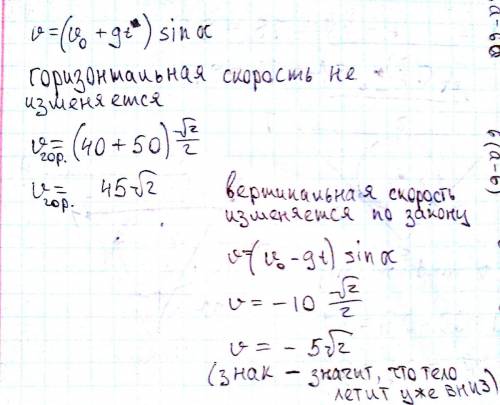 v=(v₀ + gt) sin α
горизонтальная скорость не
изменяется
v гор. = (40 + 50) √2/2
v гор. = 45√2
вертикальная скорость
изменяется по закону
v=(v₀ - gt) sin α
v = -10 √2/2
v = - 5√2
(знак – значит, что тело
летит уже вниз)